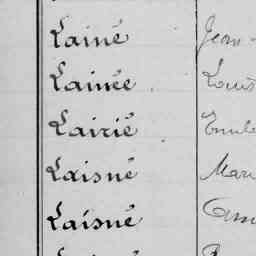 Lainé Jean
Lainée Louis
Lairié Emile
Laisné Mari
Laisné